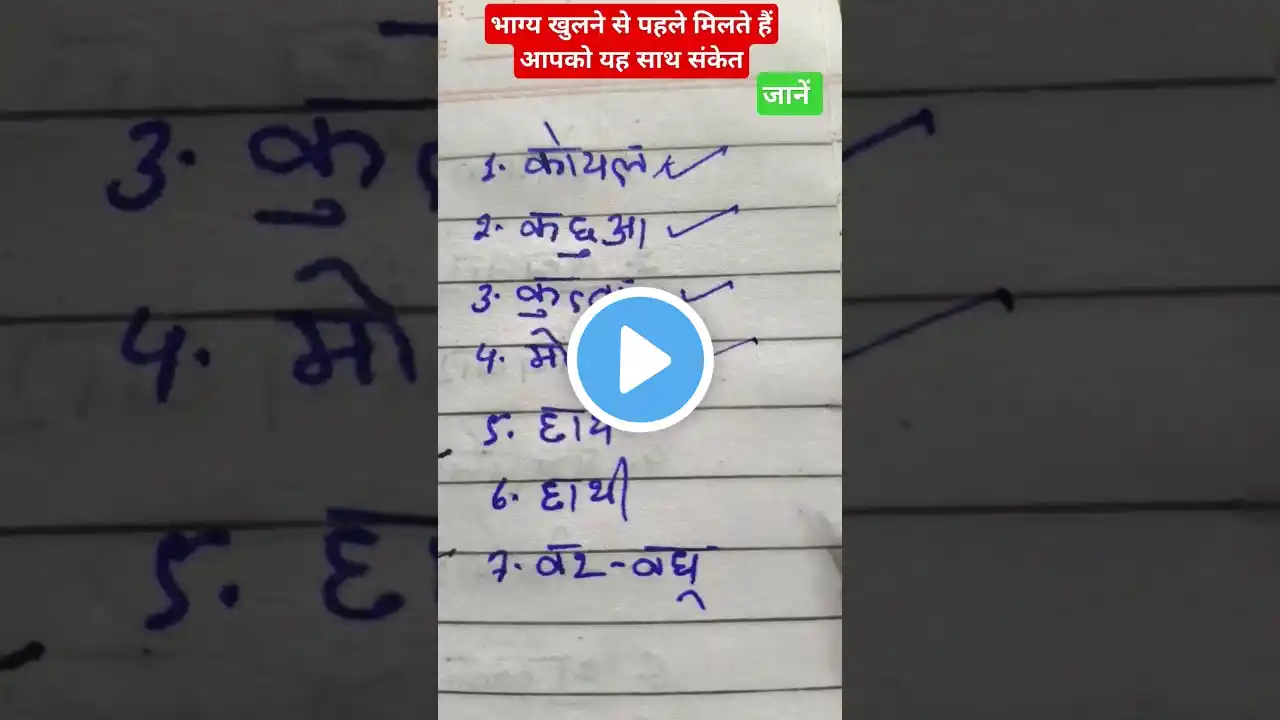 भाग्य खुलने से पहले मिलते हैं
आपको यह साथ संकेत
जानें
1. कोयल
2. कछुआ
3.
4. मो
5.
6. हाथी
7. वर-वधू